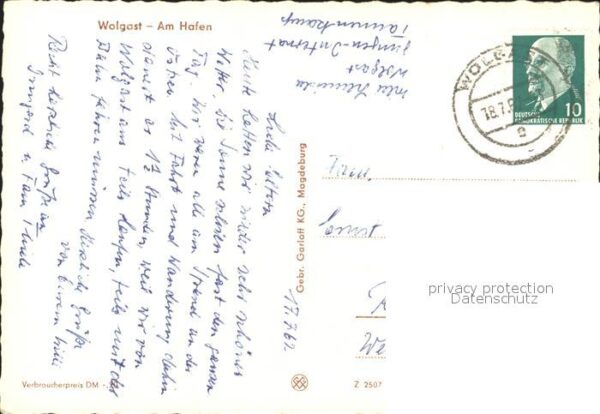 Wolgast – Am Hafen
17.7.62
Liebe Eltern
Heute hatten wir wieder sehr schönes
Wetter. Die Sonne schien fast den ganzen
Tag. Wir waren alle am Strand an der
Ostsee. Mit Fahrt und Wanderung dahin
dauert es 1½ Stunden, weil wir von
Wolgast aus teils laufen, teils mit der
Bahn fahren müssen. Herzliche Grüße
von Eurem
Recht herzliche Grüße an
Irmgard u. Fam.
Wolgast
Jungen-Internat
Tannenkamp
WOLGAST
18.7.
a
10
DEUTSCHE
DEMOKRATISCHE REPUBLIK
Gebr. Garloff KG., Magdeburg
privacy protection
Datenschutz
Verbraucherpreis DM -,
Z 2507